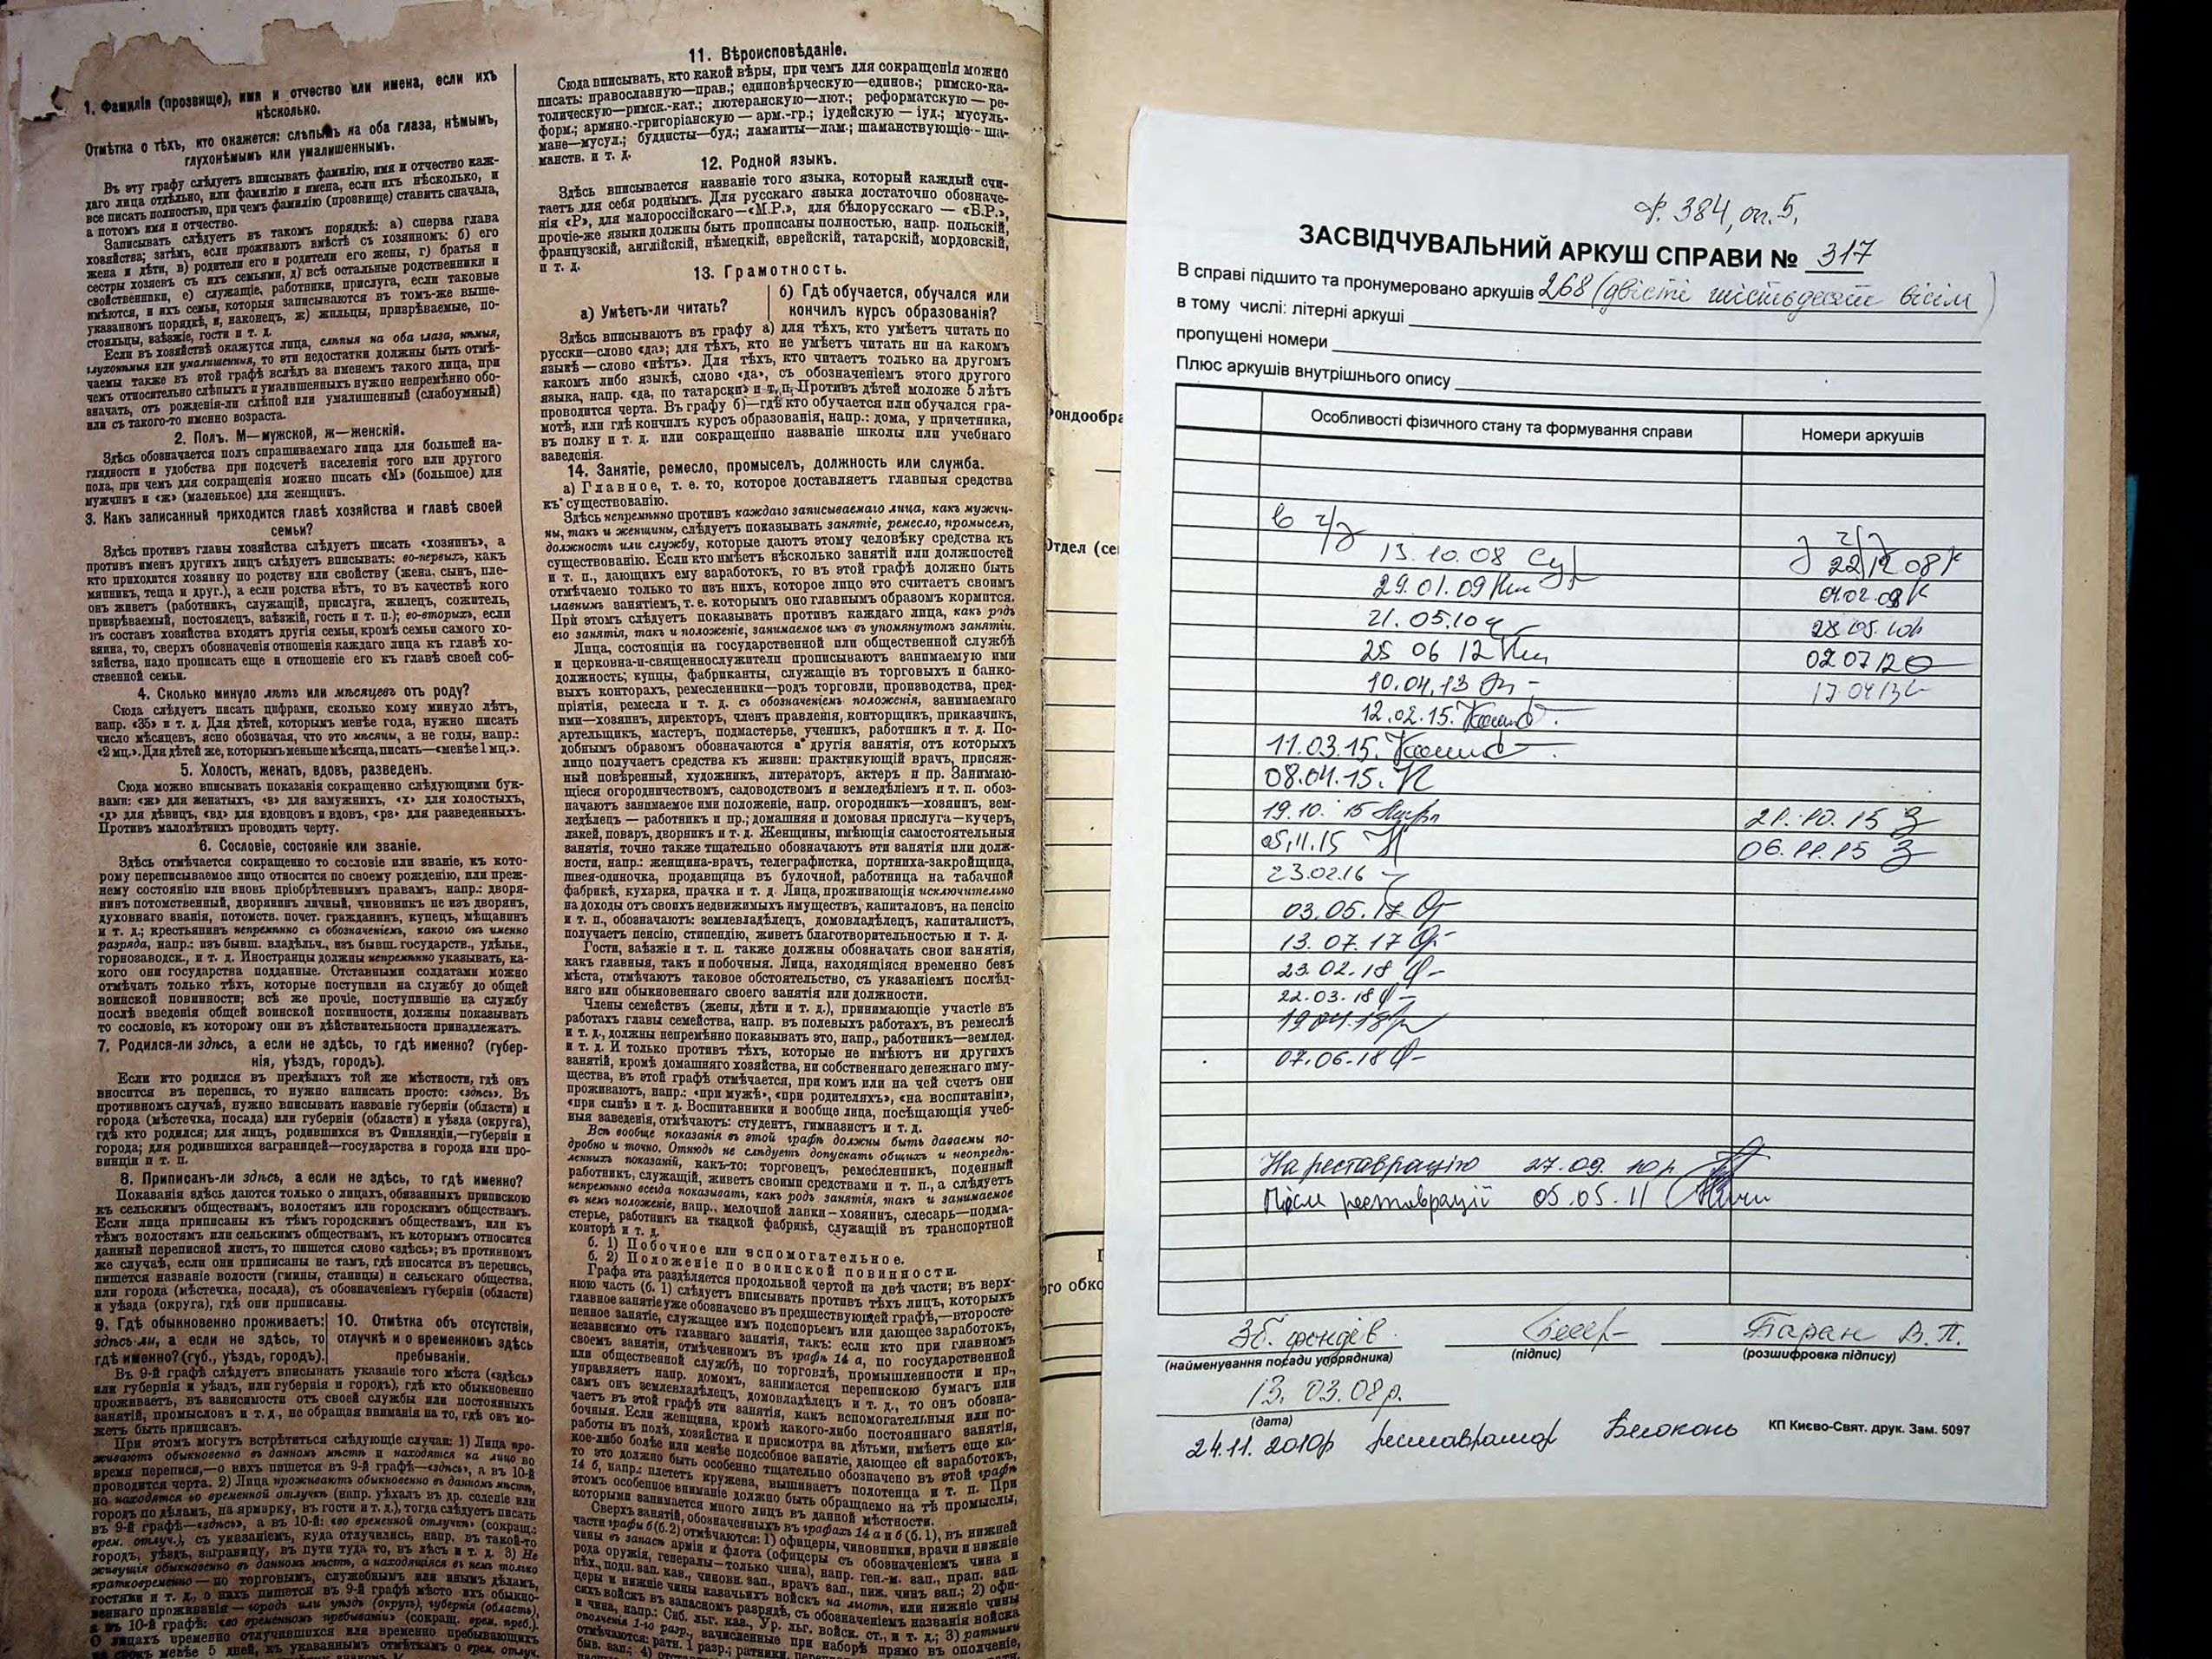 1. Фамилія (прозвище), имя и отчество или имена, если ихъ
нѣсколько.
Отмѣтка о тѣхъ, кто окажется: слѣпымъ на оба глаза, нѣмымъ,
глухонѣмымъ или умалишеннымъ.
Въ эту графу слѣдуетъ вписывать фамилію, имя и отчество каж-
даго лица отдѣльно, или фамилію и имена, если ихъ нѣсколько, и
все писать полностью, при чемъ фамилію (прозвище) ставить сначала,
а потомъ имя и отчество.
Записывать слѣдуетъ въ такомъ порядкѣ: а) сперва глава
хозяйства; затѣмъ, если проживаютъ вмѣстѣ съ хозяиномъ: б) его
жена и дѣти, в) родители его и родители его жены, г) братья и
сестры хозяевъ съ ихъ семьями, д) всѣ остальные родственники и
свойственники, е) служащіе, работники, прислуга, если таковые
имѣются, и ихъ семьи, которыя записываются въ томъ-же выше-
указанномъ порядкѣ, и, наконецъ, ж) жильцы, призрѣваемые, по-
стояльцы, заѣзжіе, гости и т. д.
Если въ хозяйствѣ окажутся лица, слѣпыя на оба глаза, нѣмыя,
глухонѣмыя или умалишенныя, то эти недостатки должны быть отмѣ-
чаемы также въ этой графѣ вслѣдъ за именемъ такого лица, при
чемъ относительно слѣпыхъ и умалишенныхъ нужно непремѣнно обо-
значать, отъ рожденія-ли слѣпой или умалишенный (слабоумный)
или съ такого-то именно возраста.
2. Полъ. М—мужской, ж—женскій.
Здѣсь обозначается полъ спрашиваемаго лица для большей на-
глядности и удобства при подсчетѣ населенія того или другого
пола, при чемъ для сокращенія можно писать «М» (большое) для
мужчинъ и «ж» (маленькое) для женщинъ.
3. Какъ записанный приходится главѣ хозяйства и главѣ своей
семьи?
Здѣсь противъ главы хозяйства слѣдуетъ писать «хозяинъ», а
противъ именъ другихъ лицъ слѣдуетъ вписывать: во-первыхъ, какъ
кто приходится хозяину по родству или свойству (жена, сынъ, пле-
мянникъ, теща и друг.), а если родства нѣтъ, то въ качествѣ кого
онъ живетъ (работникъ, служащій, прислуга, жилецъ, сожитель,
призрѣваемый, постоялецъ, заѣзжій, гость и т. п.); во-вторыхъ, если
въ составъ хозяйства входятъ другія семьи, кромѣ семьи самого хо-
зяина, то, сверхъ обозначенія отношенія каждаго лица къ главѣ хо-
зяйства, надо прописать еще и отношеніе его къ главѣ своей соб-
ственной семьи.
4. Сколько минуло лѣтъ или мѣсяцевъ отъ роду?
Сюда слѣдуетъ писать цифрами, сколько кому минуло лѣтъ,
напр. «35» и т. д. Для дѣтей, которымъ менѣе года, нужно писать
число мѣсяцевъ, ясно обозначая, что это мѣсяцы, а не годы, напр.:
«2 мц.». Для дѣтей же, которымъ меньше мѣсяца, писать—«менѣе 1 мц.».
5. Холостъ, женатъ, вдовъ, разведенъ.
Сюда можно вписывать показанія сокращенно слѣдующими бук-
вами: «ж» для женатыхъ, «з» для замужнихъ, «х» для холостыхъ,
«д» для дѣвицъ, «вд» для вдовцовъ и вдовъ, «рз» для разведенныхъ.
Противъ малолѣтнихъ проводить черту.
6. Сословіе, состояніе или званіе.
Здѣсь отмѣчается сокращенно то сословіе или званіе, къ кото-
рому переписываемое лицо относится по своему рожденію, или преж-
нему состоянію или вновь пріобрѣтеннымъ правамъ, напр.: дворя-
нинъ потомственный, дворянинъ личный, чиновникъ не изъ дворянъ,
духовнаго званія, потомств. почет. гражданинъ, купецъ, мѣщанинъ
и т. д.; крестьянинъ непремѣнно съ обозначеніемъ, какого онъ именно
разряда, напр.: изъ бывш. владѣльч., изъ бывш. государств., удѣльн.,
горнозаводск., и т. д. Иностранцы должны непремѣнно указывать, ка-
кого они государства подданные. Отставными солдатами можно
отмѣчать только тѣхъ, которые поступили на службу до общей
воинской повинности; всѣ же прочіе, поступившіе на службу
послѣ введенія общей воинской повинности, должны показывать
то сословіе, къ которому они въ дѣйствительности принадлежатъ.
7. Родился-ли здѣсь, а если не здѣсь, то гдѣ именно? (губер-
нія, уѣздъ, городъ).
Если кто родился въ предѣлахъ той же мѣстности, гдѣ онъ
вносится въ перепись, то нужно написать просто: «здѣсь». Въ
противномъ случаѣ, нужно вписывать названіе губерніи (области) и
города (мѣстечка, посада) или губерніи (области) и уѣзда (округа),
гдѣ кто родился; для лицъ, родившихся въ Финляндіи,—губерніи и
города; для родившихся заграницей—государства и города или про-
винціи и т. п.
8. Приписанъ-ли здѣсь, а если не здѣсь, то гдѣ именно?
Показанія здѣсь даются только о лицахъ, обязанныхъ припискою
къ сельскимъ обществамъ, волостямъ или городскимъ обществамъ.
Если лица приписаны къ тѣмъ городскимъ обществамъ, или къ
тѣмъ волостямъ или сельскимъ обществамъ, къ которымъ относится
данный переписной листъ, то пишется слово «здѣсь»; въ противномъ
же случаѣ, если они приписаны не тамъ, гдѣ вносятся въ перепись,
пишется названіе волости (гмины, станицы) и сельскаго общества,
или города (мѣстечка, посада), съ обозначеніемъ губерніи (области)
и уѣзда (округа), гдѣ они приписаны.
9. Гдѣ обыкновенно проживаетъ:
здѣсь-ли, а если не здѣсь, то
гдѣ именно? (губ., уѣздъ, городъ).
10. Отмѣтка объ отсутствіи,
отлучкѣ и о временномъ здѣсь
пребываніи.
Въ 9-й графѣ слѣдуетъ вписывать указаніе того мѣста («здѣсь»
или губернія и уѣздъ, или губернія и городъ), гдѣ кто обыкновенно
проживаетъ, въ зависимости отъ своей службы или постоянныхъ
занятій, промысловъ и т. д., не обращая вниманія на то, гдѣ онъ мо-
жетъ быть приписанъ.
При этомъ могутъ встрѣтиться слѣдующіе случаи: 1) Лица про-
живаютъ обыкновенно въ данномъ мѣстѣ и находятся на лицо во
время переписи,—о нихъ пишется въ 9-й графѣ—«здѣсь», а въ 10-й
проводится черта. 2) Лица проживаютъ обыкновенно въ данномъ мѣстѣ,
но находятся во временной отлучкѣ (напр. уѣхалъ въ др. селеніе или
городъ по дѣламъ, на ярмарку, въ гости и т. д.), тогда слѣдуетъ писать
въ 9-й графѣ—«здѣсь», а въ 10-й: «во временной отлучкѣ» (сокращ.:
врем. отлуч.), съ указаніемъ, куда отлучились, напр. въ такой-то
городъ, уѣздъ, заграницу, въ пути туда то, въ лѣсъ и т. д. 3) Не
живущія обыкновенно въ данномъ мѣстѣ, а находящіяся въ немъ только
кратковременно—по торговымъ, служебнымъ или инымъ дѣламъ,
гостями и т. д., о нихъ пишется въ 9-й графѣ мѣсто ихъ обыкно-
веннаго проживанія—городъ или уѣздъ (округъ), губернія (область),
а въ 10-й графѣ: «во временномъ пребываніи» (сокращ. врем. преб.).
О лицахъ временно отлучившихся или временно пребывающихъ
на срокъ менѣе 5 дней, къ указаннымъ отмѣткамъ о врем. отлуч.
11. Вѣроисповѣданіе.
Сюда вписывать, кто какой вѣры, при чемъ для сокращенія можно
писать: православную—прав.; единовѣрческую—единов.; римско-ка-
толическую—римск.-кат.; лютеранскую—лют.; реформатскую—ре-
форм.; армяно.-григоріанскую—арм.-гр.; іудейскую—іуд.; мусуль-
мане—мусул.; буддисты—буд.; ламаиты—лам.; шаманствующіе—ша-
манств. и т. д.
12. Родной языкъ.
Здѣсь вписывается названіе того языка, который каждый счи-
таетъ для себя роднымъ. Для русскаго языка достаточно обозначе-
нія «Р», для малороссійскаго—«М.Р.», для бѣлорусскаго — «Б.Р.»,
прочіе-же языки должны быть прописаны полностью, напр. польскій,
французскій, англійскій, нѣмецкій, еврейскій, татарскій, мордовскій,
и т. д.
13. Грамотность.
а) Умѣетъ-ли читать?
б) Гдѣ обучается, обучался или
кончилъ курсъ образованія?
Здѣсь вписываютъ въ графу а) для тѣхъ, кто умѣетъ читать по
русски—слово «да»; для тѣхъ, кто не умѣетъ читать ни на какомъ
языкѣ — слово «нѣтъ». Для тѣхъ, кто читаетъ только на другомъ
какомъ либо языкѣ, слово «да», съ обозначеніемъ этого другого
языка, напр. «да, по татарски» и т. п. Противъ дѣтей моложе 5 лѣтъ
проводится черта. Въ графу б)—гдѣ кто обучается или обучался гра-
мотѣ, или гдѣ кончилъ курсъ образованія, напр.: дома, у причетника,
въ полку и т. д. или сокращенно названіе школы или учебнаго
заведенія.
14. Занятіе, ремесло, промыселъ, должность или служба.
а) Главное, т. е. то, которое доставляетъ главныя средства
къ существованію.
Здѣсь непремѣнно противъ каждаго записываемаго лица, какъ мужчи-
ны, такъ и женщины, слѣдуетъ показывать занятіе, ремесло, промыселъ,
должность или службу, которые даютъ этому человѣку средства къ
существованію. Если кто имѣетъ нѣсколько занятій или должностей
и т. п., дающихъ ему заработокъ, то въ этой графѣ должно быть
отмѣчаемо только то изъ нихъ, которое лицо это считаетъ своимъ
главнымъ занятіемъ, т. е. которымъ оно главнымъ образомъ кормится.
При этомъ слѣдуетъ показывать противъ каждаго лица, какъ родъ
его занятія, такъ и положеніе, занимаемое имъ въ упомянутомъ занятіи.
Лица, состоящія на государственной или общественной службѣ
и церковна-и-священнослужители прописываютъ занимаемую ими
должность; купцы, фабриканты, служащіе въ торговыхъ и банко-
выхъ конторахъ, ремесленники—родъ торговли, производства, пред-
пріятія, ремесла и т. д. съ обозначеніемъ положенія, занимаемаго
ими—хозяинъ, директоръ, членъ правленія, конторщикъ, приказчикъ,
артельщикъ, мастеръ, подмастерье, ученикъ, работникъ и т. д. По-
добнымъ образомъ обозначаются и другія занятія, отъ которыхъ
лицо получаетъ средства къ жизни: практикующій врачъ, присяж-
ный повѣренный, художникъ, литераторъ, актеръ и пр. Занимаю-
щіеся огородничествомъ, садоводствомъ и земледѣліемъ и т. п. обоз-
начаютъ занимаемое ими положеніе, напр. огородникъ—хозяинъ, зем-
ледѣлецъ — работникъ и пр.; домашняя и домовая прислуга—кучеръ,
лакей, поваръ, дворникъ и т. д. Женщины, имѣющія самостоятельныя
занятія, точно также тщательно обозначаютъ эти занятія или долж-
ности, напр.: женщина-врачъ, телеграфистка, портниха-закройщица,
швея-одиночка, продавщица въ булочной, работница на табачной
фабрикѣ, кухарка, прачка и т. д. Лица, проживающія исключительно
на доходы отъ своихъ недвижимыхъ имуществъ, капиталовъ, на пенсію
и т. п., обозначаютъ: землевладѣлецъ, домовладѣлецъ, капиталистъ,
получаетъ пенсію, стипендію, живетъ благотворительностью и т. д.
Гости, заѣзжіе и т. п. также должны обозначать свои занятія,
какъ главныя, такъ и побочныя. Лица, находящіяся временно безъ
мѣста, отмѣчаютъ таковое обстоятельство, съ указаніемъ послѣд-
няго или обыкновеннаго своего занятія или должности.
Члены семействъ (жены, дѣти и т. д.), принимающіе участіе въ
работахъ главы семейства, напр. въ полевыхъ работахъ, въ ремеслѣ
и т. д., должны непремѣнно показывать это, напр., работникъ—землед.
и т. д. И только противъ тѣхъ, которые не имѣютъ ни другихъ
занятій, кромѣ домашняго хозяйства, ни собственнаго денежнаго иму-
щества, въ этой графѣ отмѣчается, при комъ или на чей счетъ они
проживаютъ, напр.: «при мужѣ», «при родителяхъ», «на воспитаніи»,
«при сынѣ» и т. д. Воспитанники и вообще лица, посѣщающія учеб-
ныя заведенія, отмѣчаютъ: студентъ, гимназистъ и т. д.
Всѣ вообще показанія въ этой графѣ должны быть даваемы по-
дробно и точно. Отнюдь не слѣдуетъ допускать общихъ и неопредѣ-
ленныхъ показаній, какъ-то: торговецъ, ремесленникъ, поденный
работникъ, служащій, живетъ своими средствами и т. п., а слѣдуетъ
непремѣнно всегда показывать, какъ родъ занятія, такъ и занимаемое
въ немъ положеніе, напр., мелочной лавки—хозяинъ, слесарь—подма-
стерье, работникъ на ткацкой фабрикѣ, служащій въ транспортной
конторѣ и т. д.
б. 1) Побочное или вспомогательное.
б. 2) Положеніе по воинской повинности.
Графа эта раздѣляется продольной чертой на двѣ части; въ верх-
нюю часть (б. 1) слѣдуетъ вписывать противъ тѣхъ лицъ, которыхъ
главное занятіе уже обозначено въ предшествующей графѣ,—второсте-
пенное занятіе, служащее имъ подспорьемъ или дающее заработокъ,
независимо отъ главнаго занятія, такъ: если кто при главномъ
своемъ занятіи, отмѣченномъ въ графѣ 14 а, по государственной
или общественной службѣ, по торговлѣ, промышленности и пр.,
управляетъ напр. домомъ, занимается перепискою бумагъ или
самъ онъ землевладѣлецъ, домовладѣлецъ и т. д., то онъ обозна-
чаетъ въ этой графѣ эти занятія, какъ вспомогательныя или по-
бочныя. Если женщина, кромѣ какого-либо постояннаго занятія,
работы въ полѣ, хозяйства и присмотра за дѣтьми, имѣетъ еще ка-
кое-либо болѣе или менѣе подсобное занятіе, дающее ей заработокъ,
то это должно быть особенно тщательно обозначено въ этой графѣ
14 б, напр.: плететъ кружева, вышиваетъ полотенца и т. п. При
этомъ особенное вниманіе должно быть обращаемо на тѣ промыслы,
которыми занимается много лицъ въ данной мѣстности.
Сверхъ занятій, обозначенныхъ въ графахъ 14 а и б (б. 1), въ нижней
части графы б (б.2) отмѣчаются: 1) офицеры, чиновники, врачи и нижніе
чины въ запасѣ арміи и флота (офицеры съ обозначеніемъ чина и
рода оружія, генералы—только чина), напр. ген.-м. зап., прап. зап.
пѣх., подп. зап. кав., чиновн. зап., врачъ зап., ниж. чинъ зап.; 2) офи-
церы и нижніе чины казачьихъ войскъ на льготѣ, или нижніе чины
сихъ войскъ въ запасномъ разрядѣ, съ обозначеніемъ названія войска
и чина, напр.: Сиб. льг. кав., Ур. льг. войск. ст., и т. д.; 3) ратники
ополченія 1-го разр., зачисленные при наборѣ прямо въ ополченіе,
отмѣчаются: ратн. 1 разр.; ратники,
рондообра
Отдел (се
ого обко
Ф. 384, оп. 5,
ЗАСВІДЧУВАЛЬНИЙ АРКУШ СПРАВИ № 317
В справі підшито та пронумеровано аркушів 268 (двісті шістдесят вісім)
в тому числі: літерні аркуші
пропущені номери
Плюс аркушів внутрішнього опису
Особливості фізичного стану та формування справи Номери аркушів
в ч/з з ч/з
13.10.08 22.12 08
29.01.09
21.05.10 28.05.10
25 06 12 02 07 12
10.04.13 17 04 13
12.02.15.
11.03.15.
08.04.15.
19.10.15 21.10.15
05.11.15 06.11.15
23.02.16
03.05.17
13.07.17
23.02.18
22.03.18
19.04.18
07.06.18
На реставрацію 27.09.10р.
Після реставрації 05.05.11
Зб. фондів Таран В. П.
(найменування посади упорядника) (підпис) (розшифровка підпису)
13.03.08р.
(дата)
24.11.2010р реставратор Білоконь
КП Києво-Свят. друк. Зам. 5097